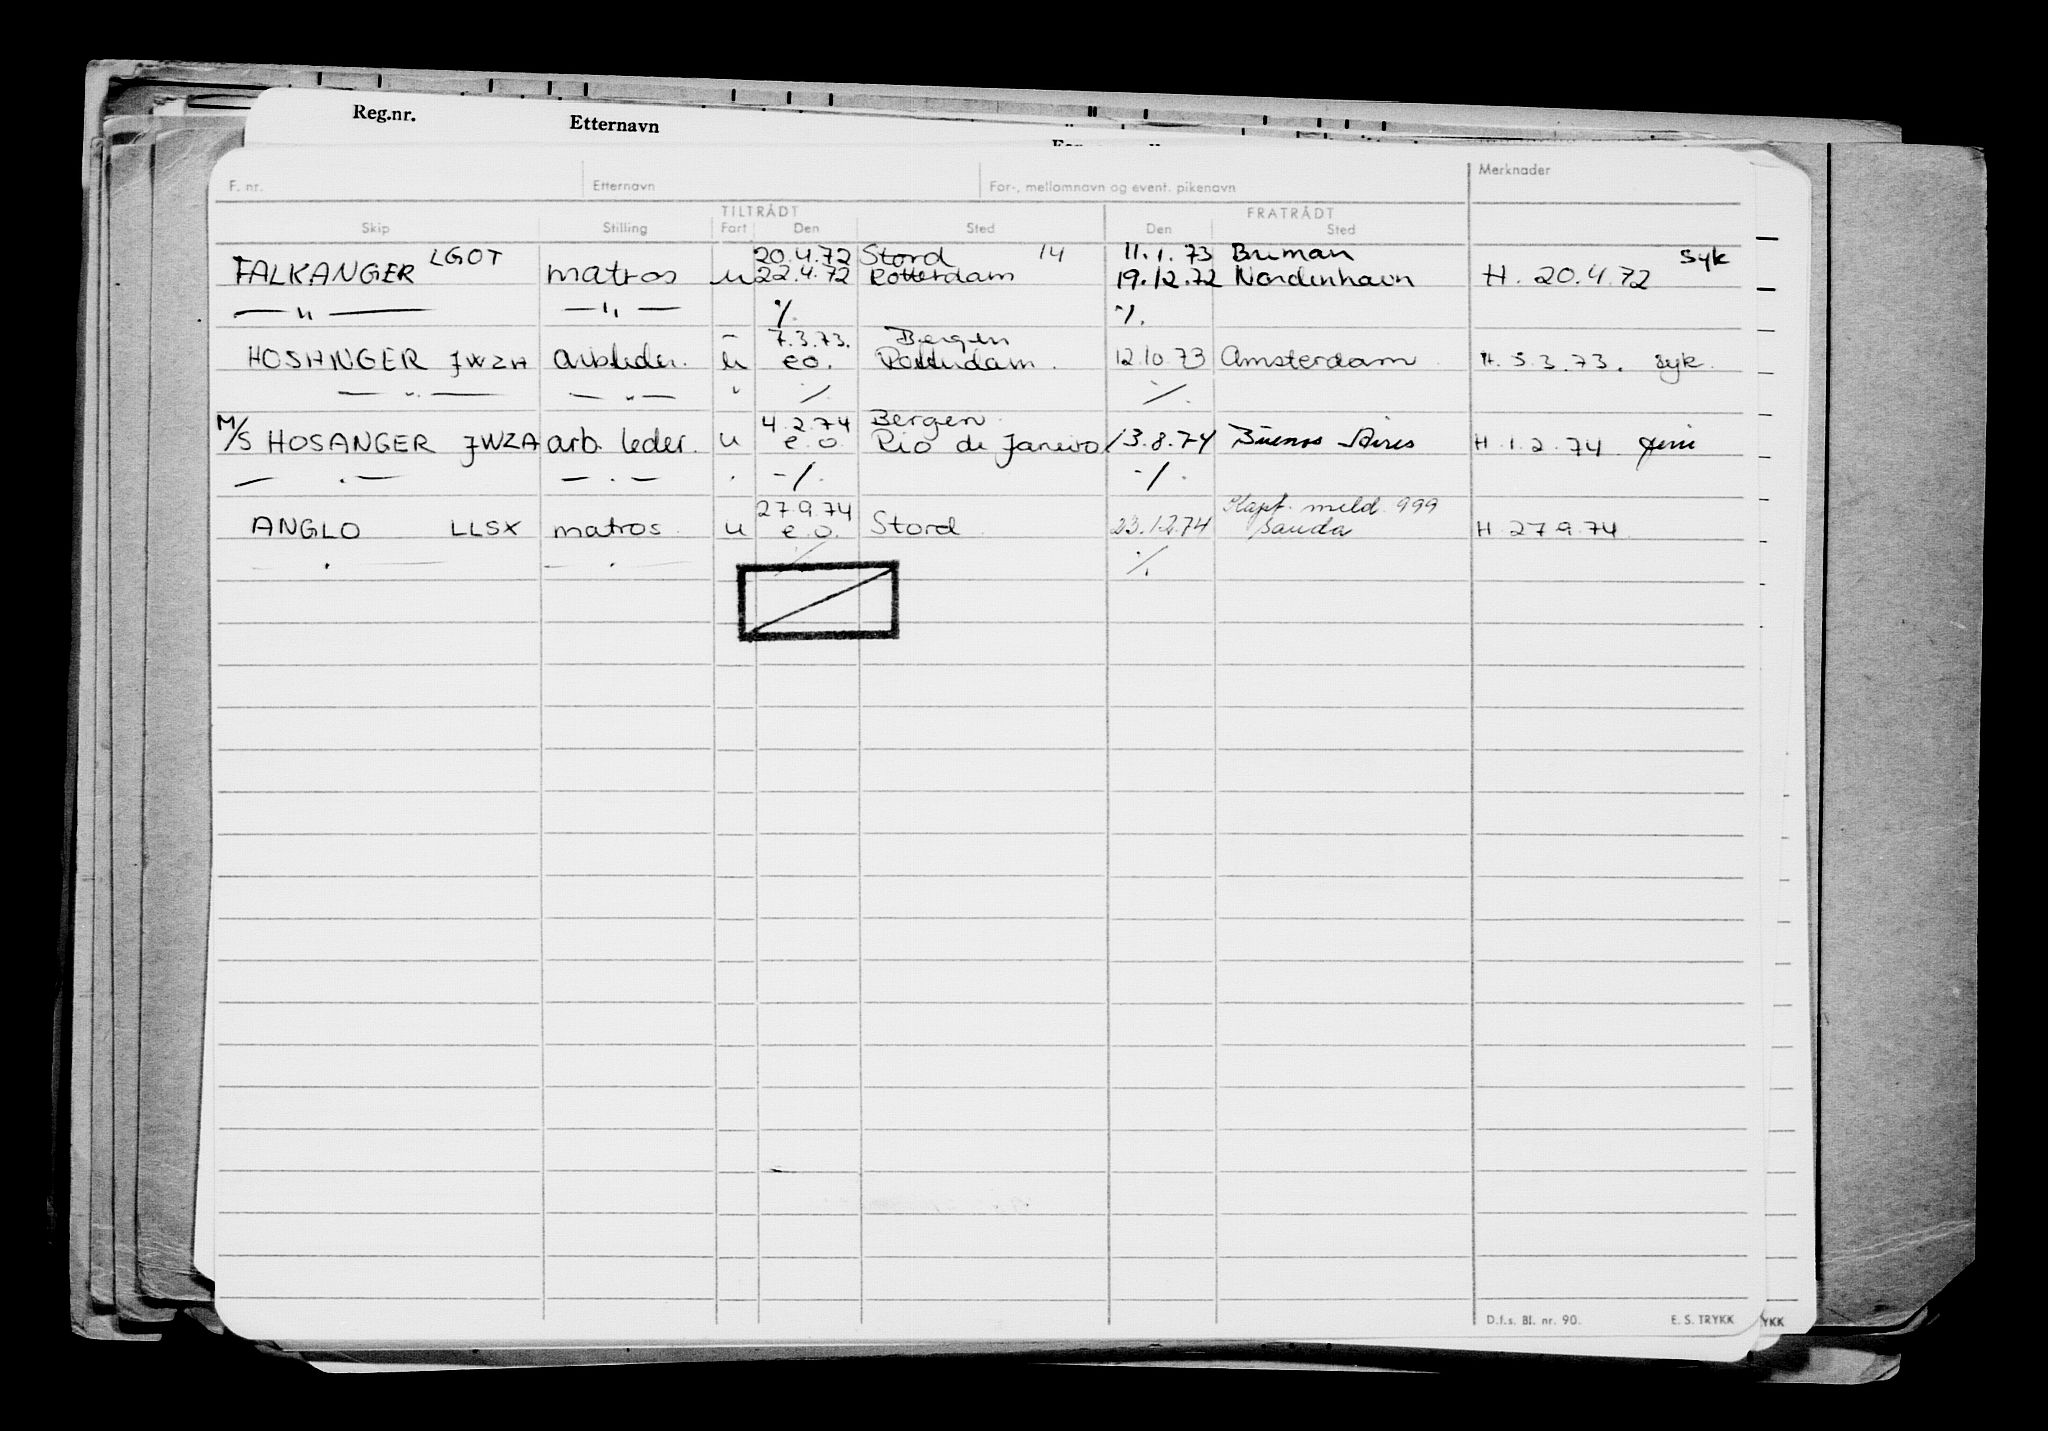 Reg.nr. Etternavn
F. nr. Etternavn For-, mellomnavn og event. pikenavn Merknader
TILTRÅDT FRATRÅDT
Skip Stilling Fart Den Sted Den Sted
20.4.72 Stord 14 11.1.73 Bremen Syk
FALKANGER LGOT matros u 22.4.72 Rotterdam 19.12.72 Nordenhavn H. 20.4.72
— " — — " — ./. ./.
7.3.73. Bergen
HOSANGER JWZA arbleder. u eo. Rotterdam. 12.10.73 Amsterdam H. 5.3.73. Syk.
— " — — " — " ./. ./.
4.2.74 Bergen
M/S HOSANGER JWZA arb. leder. u e.o. Rio de Janeiro 13.8.74 Buenos Aires H. 1.2.74 ferie
— . — — . — . -/. -/.
27.9.74 Kapt. meld. 999
ANGLO LLSX matros u e.o. Stord 23.12.74 Sauda H. 27.9.74
— . — — . — ./. ./.
D.f.s. Bl. nr. 90. E. S. TRYKK YKK